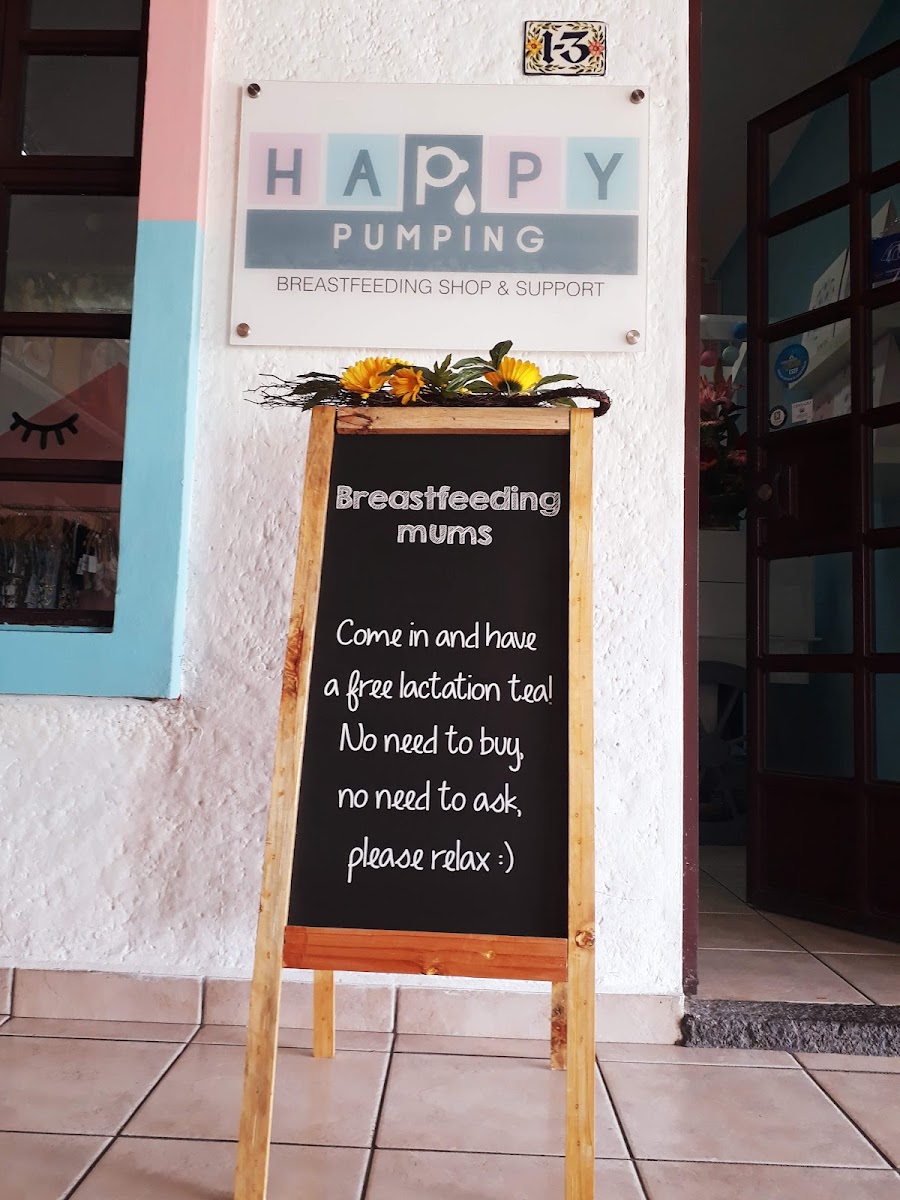 1-3
HAPPY
PUMPING
BREASTFEEDING SHOP & SUPPORT
Breastfeeding
mums
Come in and have
a free lactation tea!
No need to buy,
no need to ask,
please relax :)